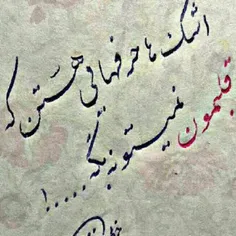 اشک ها حرفهایی هستن که
قلبمون نمیتونه بگه....!